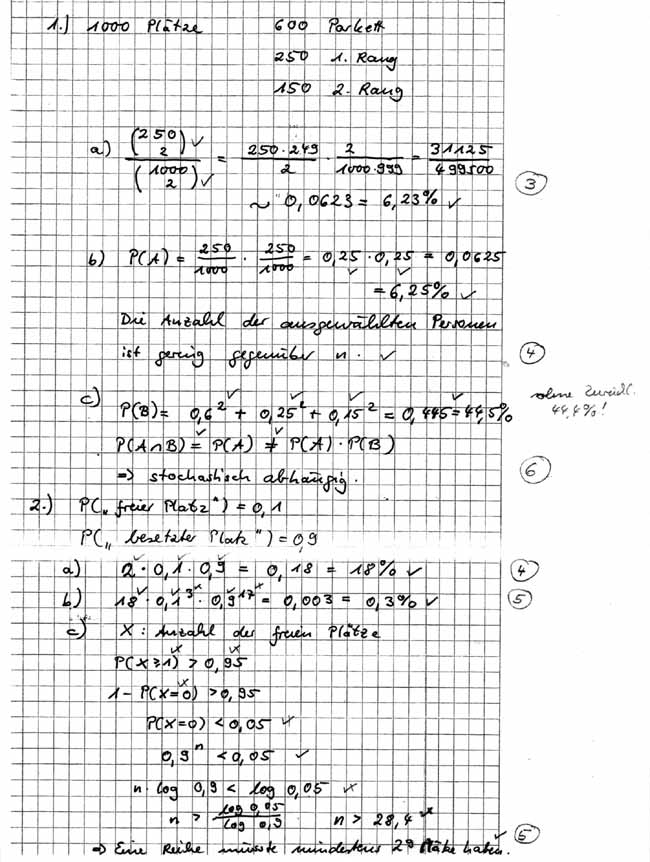 1.) 1000 Plätze 600 Parkett
250 1. Rang
150 2. Rang
a) (250 über 2) ✓ / (1000 über 2) ✓ = 250·249/2 · 2/1000·999 = 31125/499500
~ 0,0623 = 6,23% ✓ (3)
b) P(A) = 250/1000 · 250/1000 = 0,25 · 0,25 = 0,0625
= 6,25% ✓
Die Anzahl der ausgewählten Personen
ist gering gegenüber n. ✓ (4)
c) P(B) = 0,6² + 0,25² + 0,15² = 0,445 = 44,5% ohne Zurückl.
44,4%!
P(A∩B) = P(A) ≠ P(A) · P(B)
=> stochastisch abhängig. (6)
2.) P(„freier Platz") = 0,1
P(„besetzter Platz") = 0,9
a) 2 · 0,1 · 0,9 = 0,18 = 18% ✓ (4)
b) 18 · 0,1³ · 0,9¹⁷ = 0,003 = 0,3% ✓ (5)
c) X : Anzahl der freien Plätze
P(X≥1) > 0,95
1 - P(X=0) > 0,95
P(X=0) < 0,05 ✓
0,9ⁿ < 0,05 ✓
n · log 0,9 < log 0,05 ✓
n > log 0,05/log 0,9 n > 28,4 ✓
=> Eine Reihe müsste mindestens 29 Plätze haben. ✓ (5)